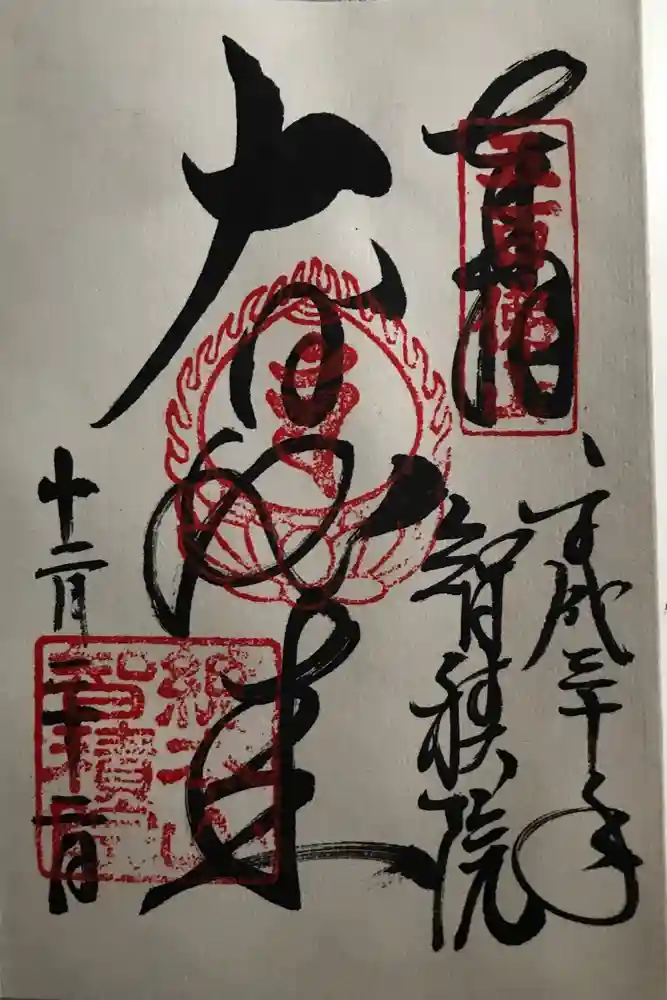 奉拝
五百佛山
平成三十年
智積院
大日如来
十二月二十二日
総本山
智積院